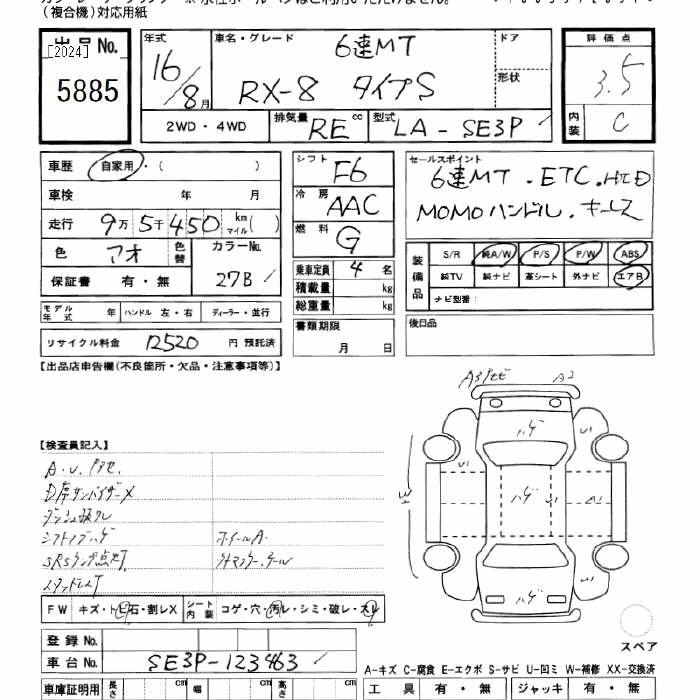 (複合機)対応用紙
出品 No.
[2024]
5885
年式 車名・グレード 6速MT ドア
16/8月 RX-8 タイプS 形状
2WD・4WD 排気量 RE cc 型式 LA-SE3P
評価点
3.5
内装 C
車歴 自家用・( )
車検 年 月
走行 9万5千450 km マイル( )
色 アオ 色替 カラーNo.
保証書 有・無 27B
シフト F6
冷房 AAC
燃料 G
乗車定員 4 名
積載量 kg
総重量 kg
書類期限
月 日
セールスポイント
6速MT . ETC . HID
MOMOハンドル . キーレス
装備品 S/R 純A/W P/S P/W ABS
純TV 純ナビ 革シート 外ナビ エアB
ナビ型番:
後日品
モデル年式 年 ハンドル 左・右 ディーラー・並行
リサイクル料金 12520 円 預託済
【出品店申告欄(不良箇所・欠品・注意事項等)】
【検査員記入】
D席サンバイザーX
シフトノブハゲ ホイールA.
SRSランプ点灯
A2
ハゲ
U1
U1
ハゲ
ハゲ
FW キズ・トビ石・割レX シート内装 コゲ・穴・汚レ・シミ・破レ・スレ
登録 No.
車台 No. SE3P-123463
車庫証明用 長さ cm 幅 cm 高さ cm
スペア
A-キズ C-腐食 E-エクボ S-サビ U-凹ミ W-補修 XX-交換済
工具 有・無 ジャッキ 有・無